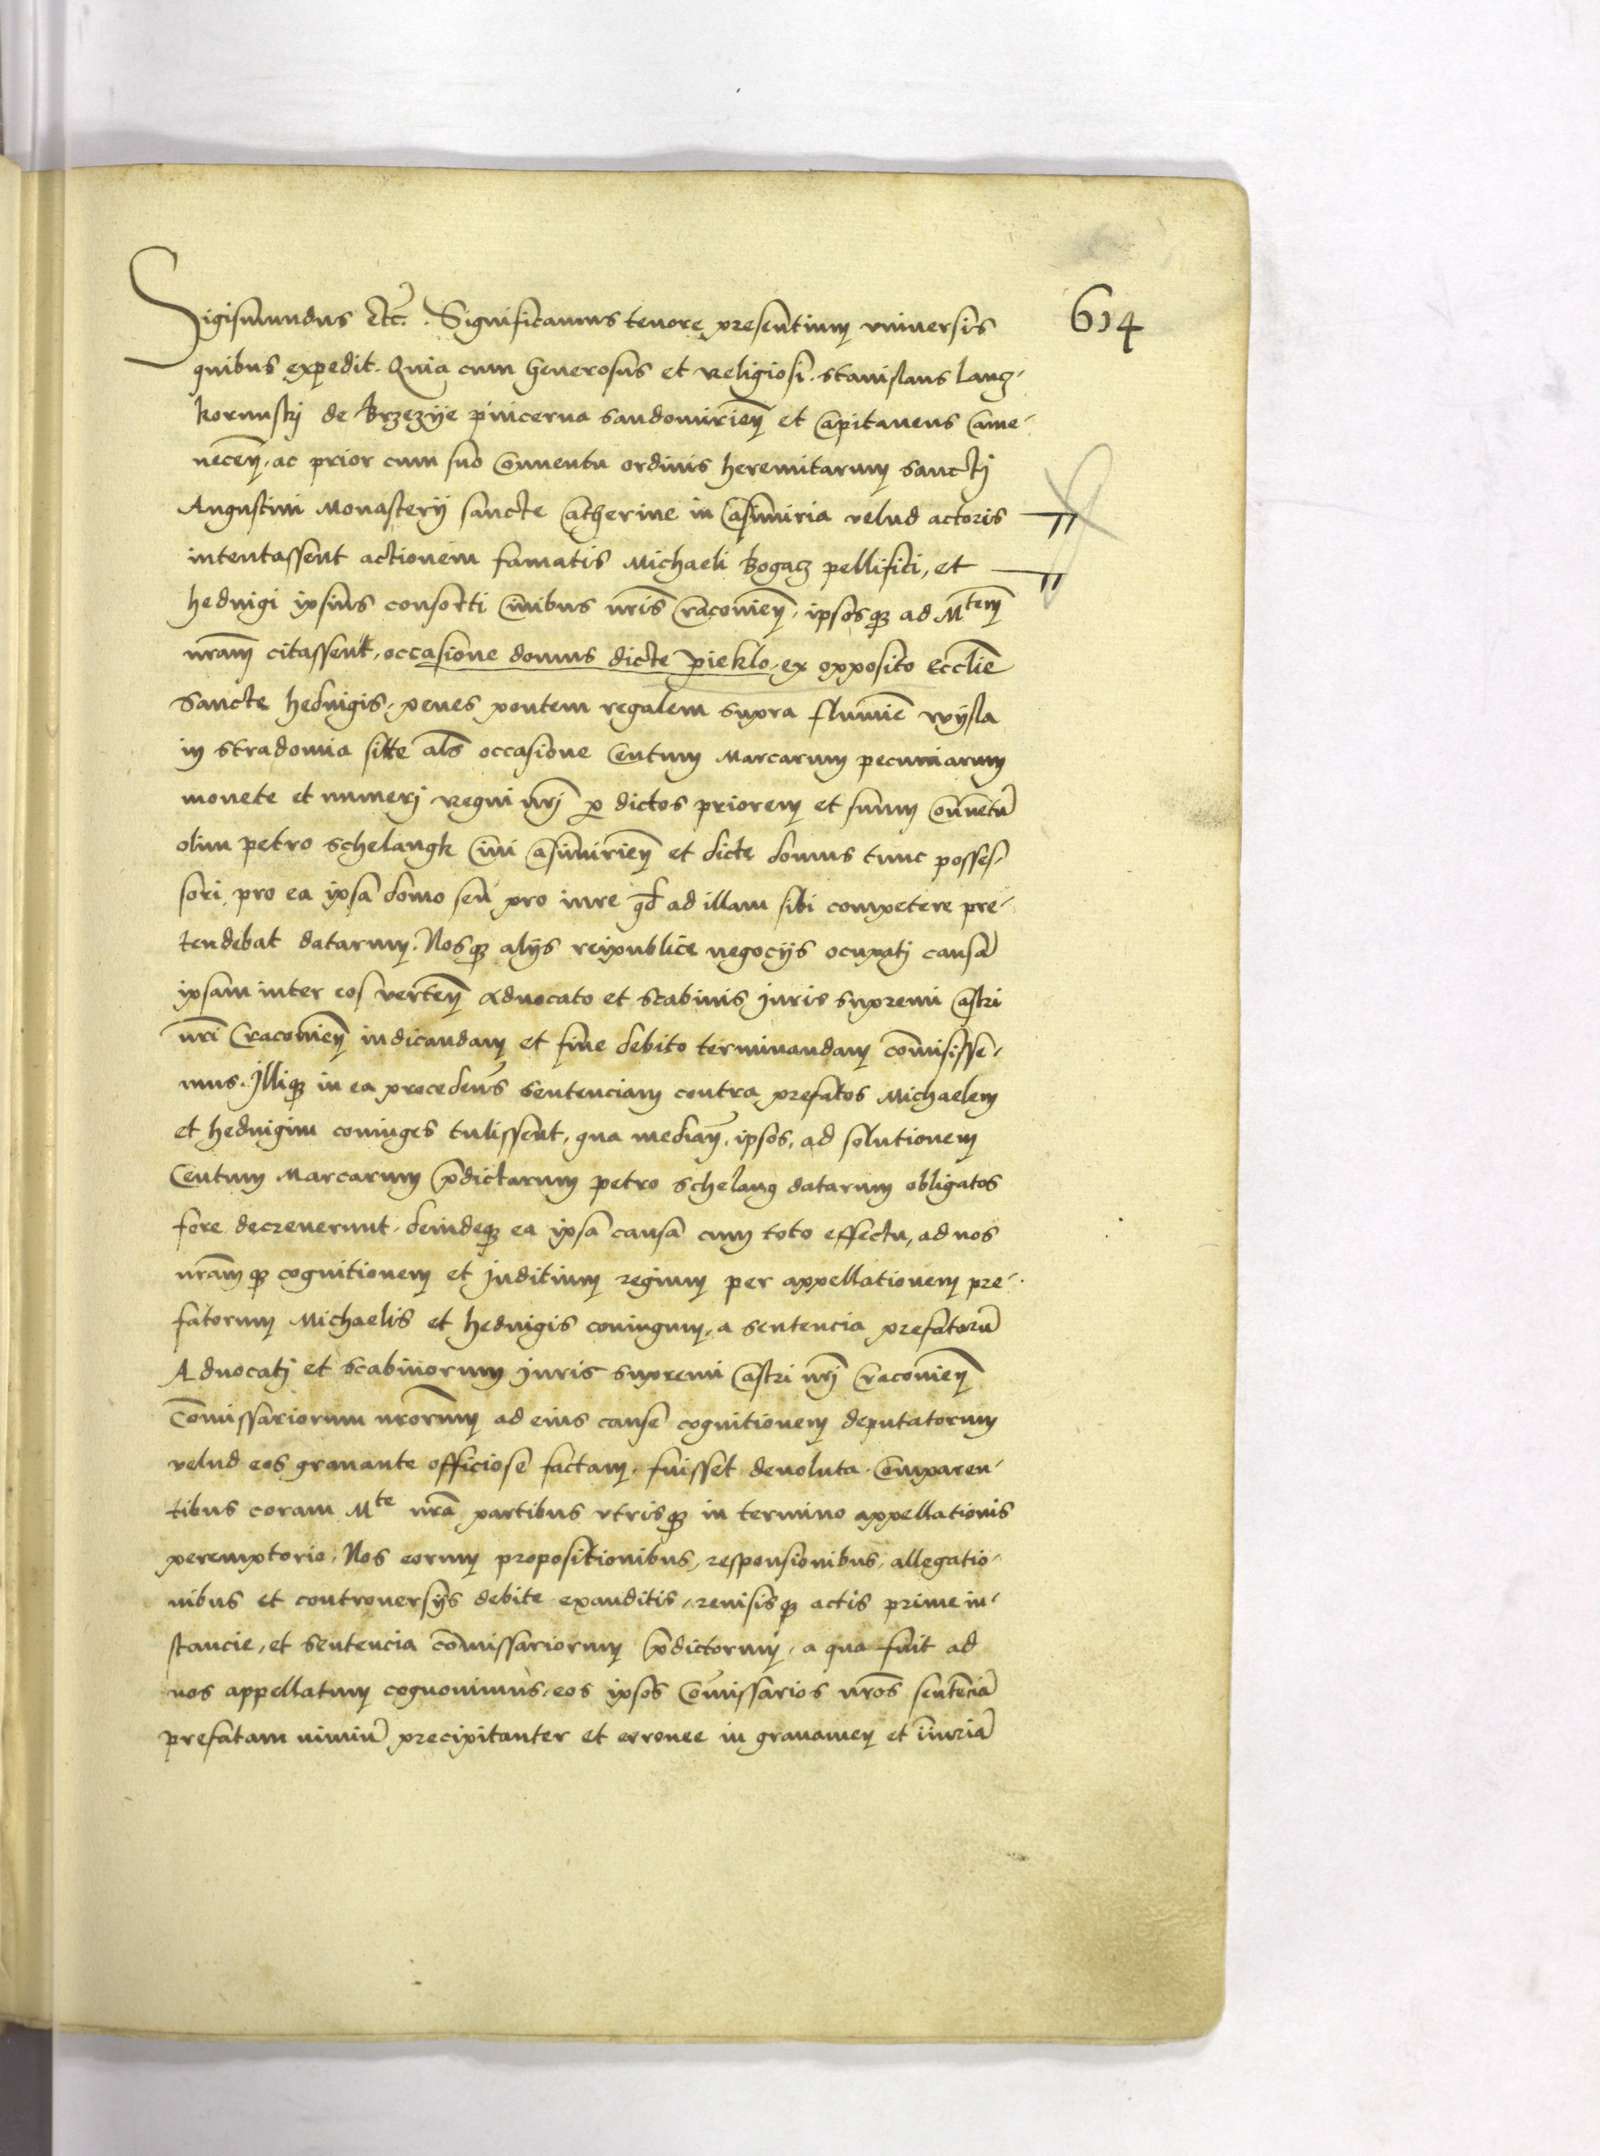 614
Sigismundus Etc. Significamus tenore presentium vniuersis
quibus expedit. Quia cum Generosus et religiosi. Stanislaus Lancz-
korunskj de Brzezije pincerna sandomirien̄ et Capitaneus Came-
necen̄, ac prior cum suo Conuentu ordinis heremitarum Sanctj
Augustini Monasterij sancte Catherine in Casimiria velud actoris
intentassent actionem famatis Michaeli Bogacz pellifici, et
heduigi ipsius consorti Ciuibus nr̄is Cracouien̄, ipsosq̢ ad Mtem
nram̄ citassent, occasione domus dicte pieklo, ex opposito Eccliē
Sancte heduigis, penes pontem regalem supra flumiē wysla
in stradomia sitte als̄ occasione Centum Marcarum pecuniarum
monete et numerj regni nr̄j p̲ dictos priorem et suum Conuentū
olim petro Schelangk Ciui Casimirien̄ et dicte domus tunc posses-
sori, pro ea ipsa domo seu pro iure qd̄ ad illam sibi competere pre-
tendebat datarum. Nosq̢ alijs reipublice negocijs ocupatj causā
ipsam inter eos verten̄ Aduocato et Scabinis juris supremi Castri
nr̄i Cracouien̄ iudicandam et fine debito terminandam com̄isisse-
mus. Jlliq̢ in ea procedens̄ Sentenciam contra prefatos Michaelem
et heduigim coniuges tulissent, qua median̄, ipsos, ad solutionem
Centum Marcarum p̄dictarum petro Schelang datarum obligatos
fore decreuerunt, deindeq̢ ea ipsa causa cum toto effectu, ad nos
nram̄q̢ cognitionem et juditium regium per appellationem pre-
fatorum Michaelis et heduigis coniugum, a sentencia prefatorū
Aduocatj et scabinorum juris supremi Castri nr̄j Cracouien̄
Com̄issariorum nrōrum ad eius cause cognitionem deputatorum
velud eos grauante officiose factam, fuisset deuoluta. Comparen-
tibus coram Mte nr̄a partibus vtrisq̢ in termino appellationis
peremptorio, Nos eorum propositionibus, responsionibus, allegatio-
nibus et controuersijs debite exauditis, reuisisq̢ actis prime in-
stancie, et Sentencia com̄issariorum p̄dictorum, a qua fuit ad
nos appellatum cognouimus, eos ipsos Com̄issarios nrōs sentēciā
prefatam nimiū precipitanter et erronee in grauamen et iniuriā